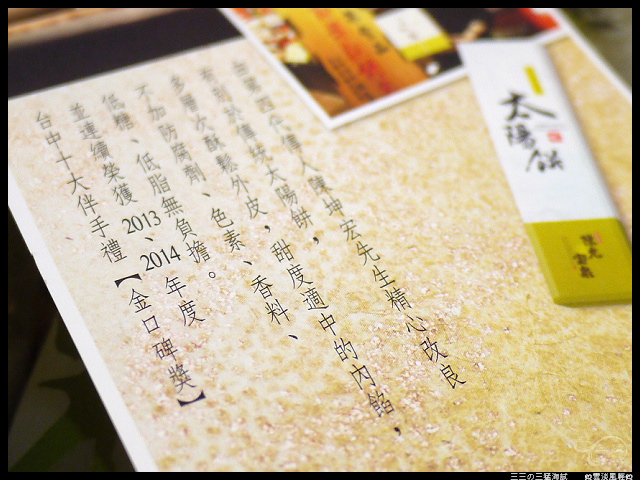 由第四代傳人陳坤宏先生精心改良
有別於傳統太陽餅，甜度適中的內餡，
多層次酥鬆外皮，香料、
不加防腐劑、色素、
低糖、低脂無負擔。
並連續榮獲2013、2014年度
台中十大伴手禮【金口碑獎】
太陽餅
三三の三猛海賦
雲淡風輕